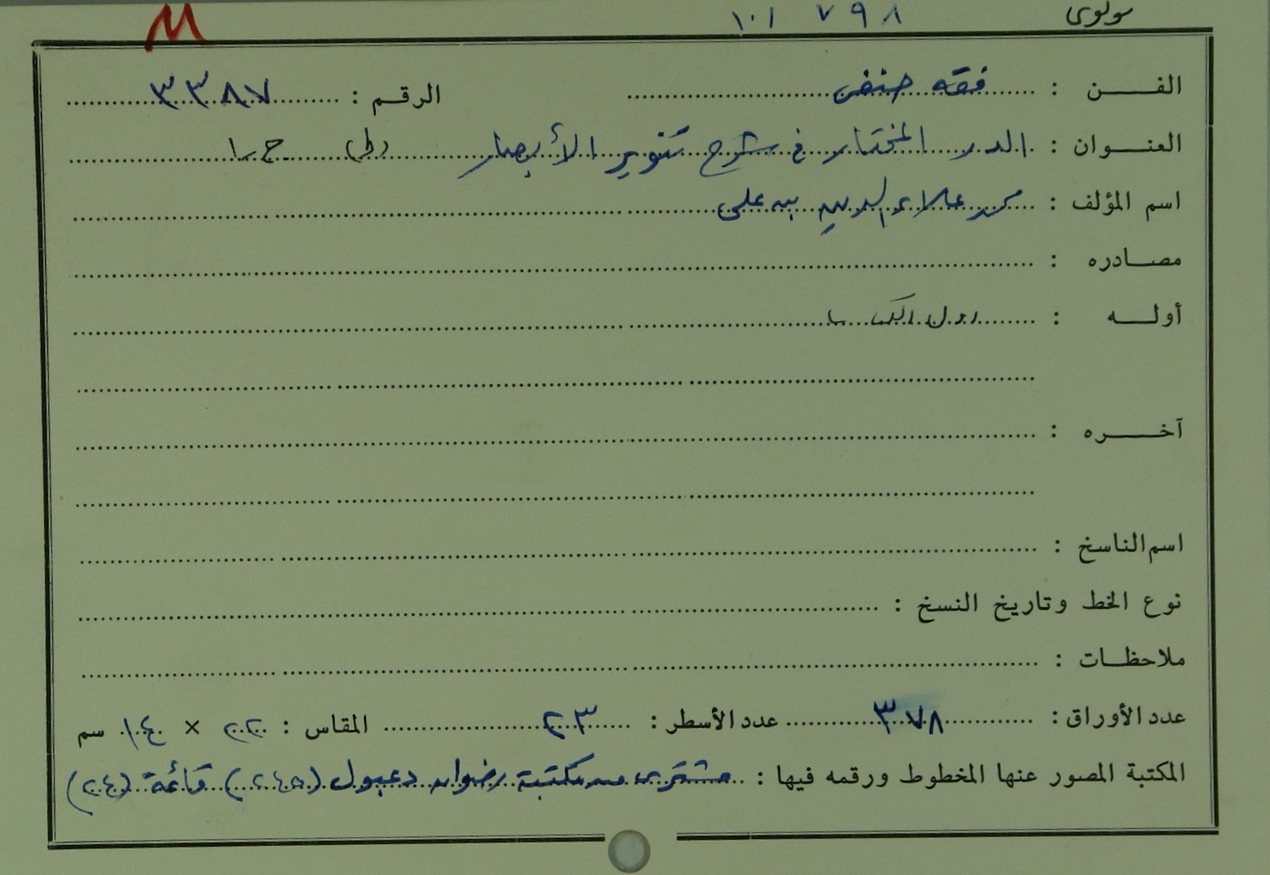 مولوى ٧٩٨ ١٠١
الفن : فقه حنفى الرقم : ٣٣٨٧
العنوان : الدر المختار في شرح تنوير الأبصار ج ١
اسم المؤلف : محمد علاء الدين بن على
مصادره :
أوله :
آخره :
اسم الناسخ :
نوع الخط وتاريخ النسخ :
ملاحظات :
عدد الأوراق : ٣٧٨ عدد الأسطر : ٢٣ المقاس : ٢٢ × ١٤ سم
المكتبة المصور عنها المخطوط ورقمه فيها : مشترى من مكتبة رضوان دعبول قائمة (٢٤)